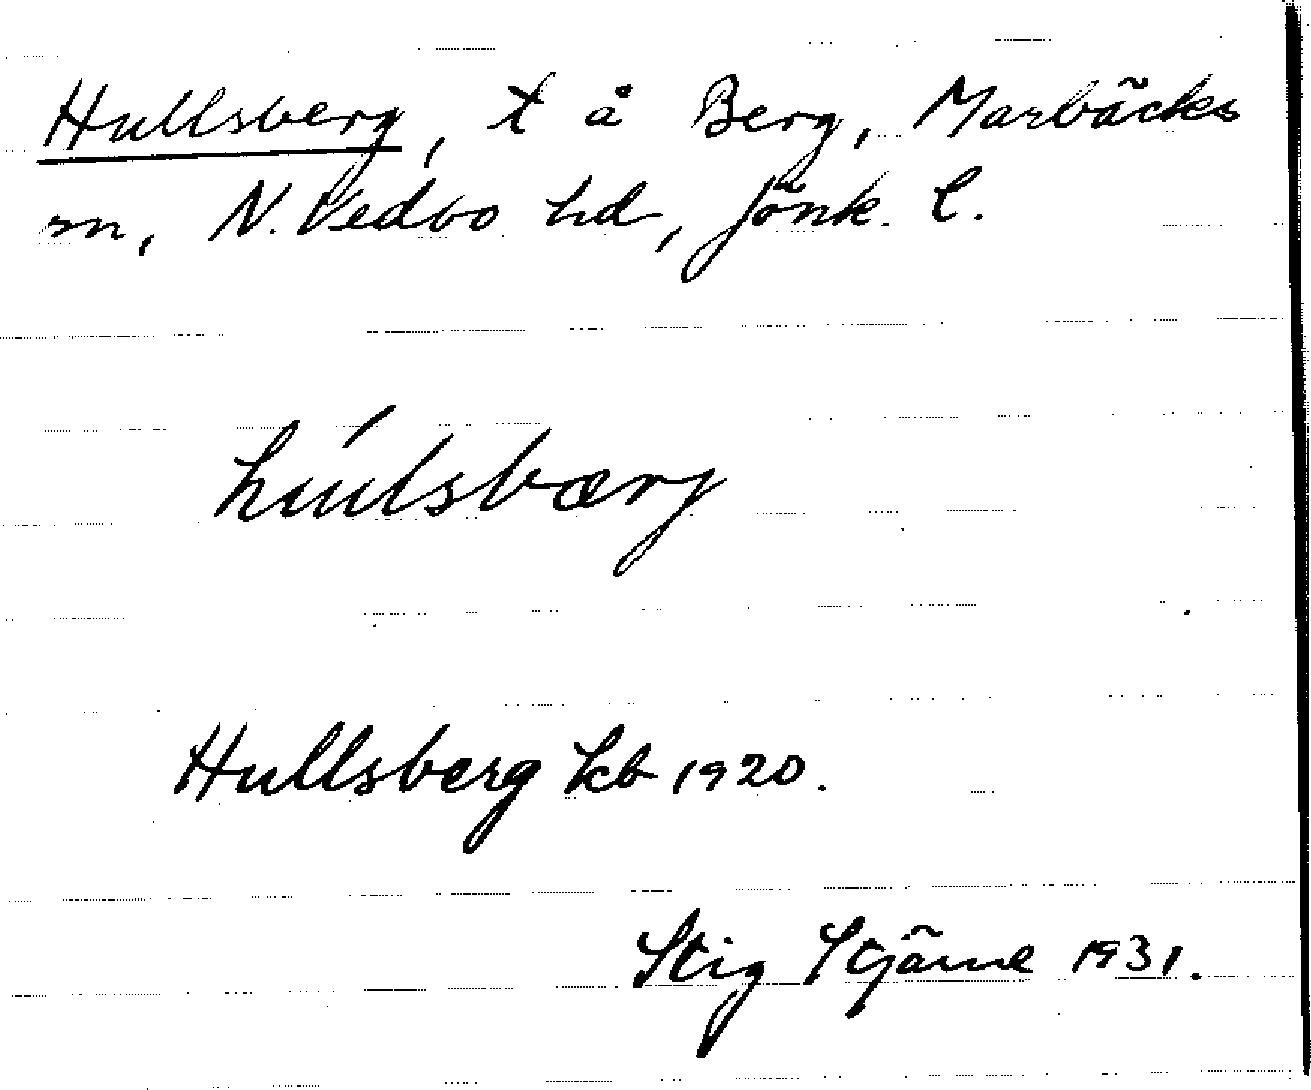 Hullsberg, t å Berg, Marbäcks
sn, N. Vedbo hd, Jönk. l.
húlsbærj
Hullsberg kb 1920.
Stig Stjärne 1931.